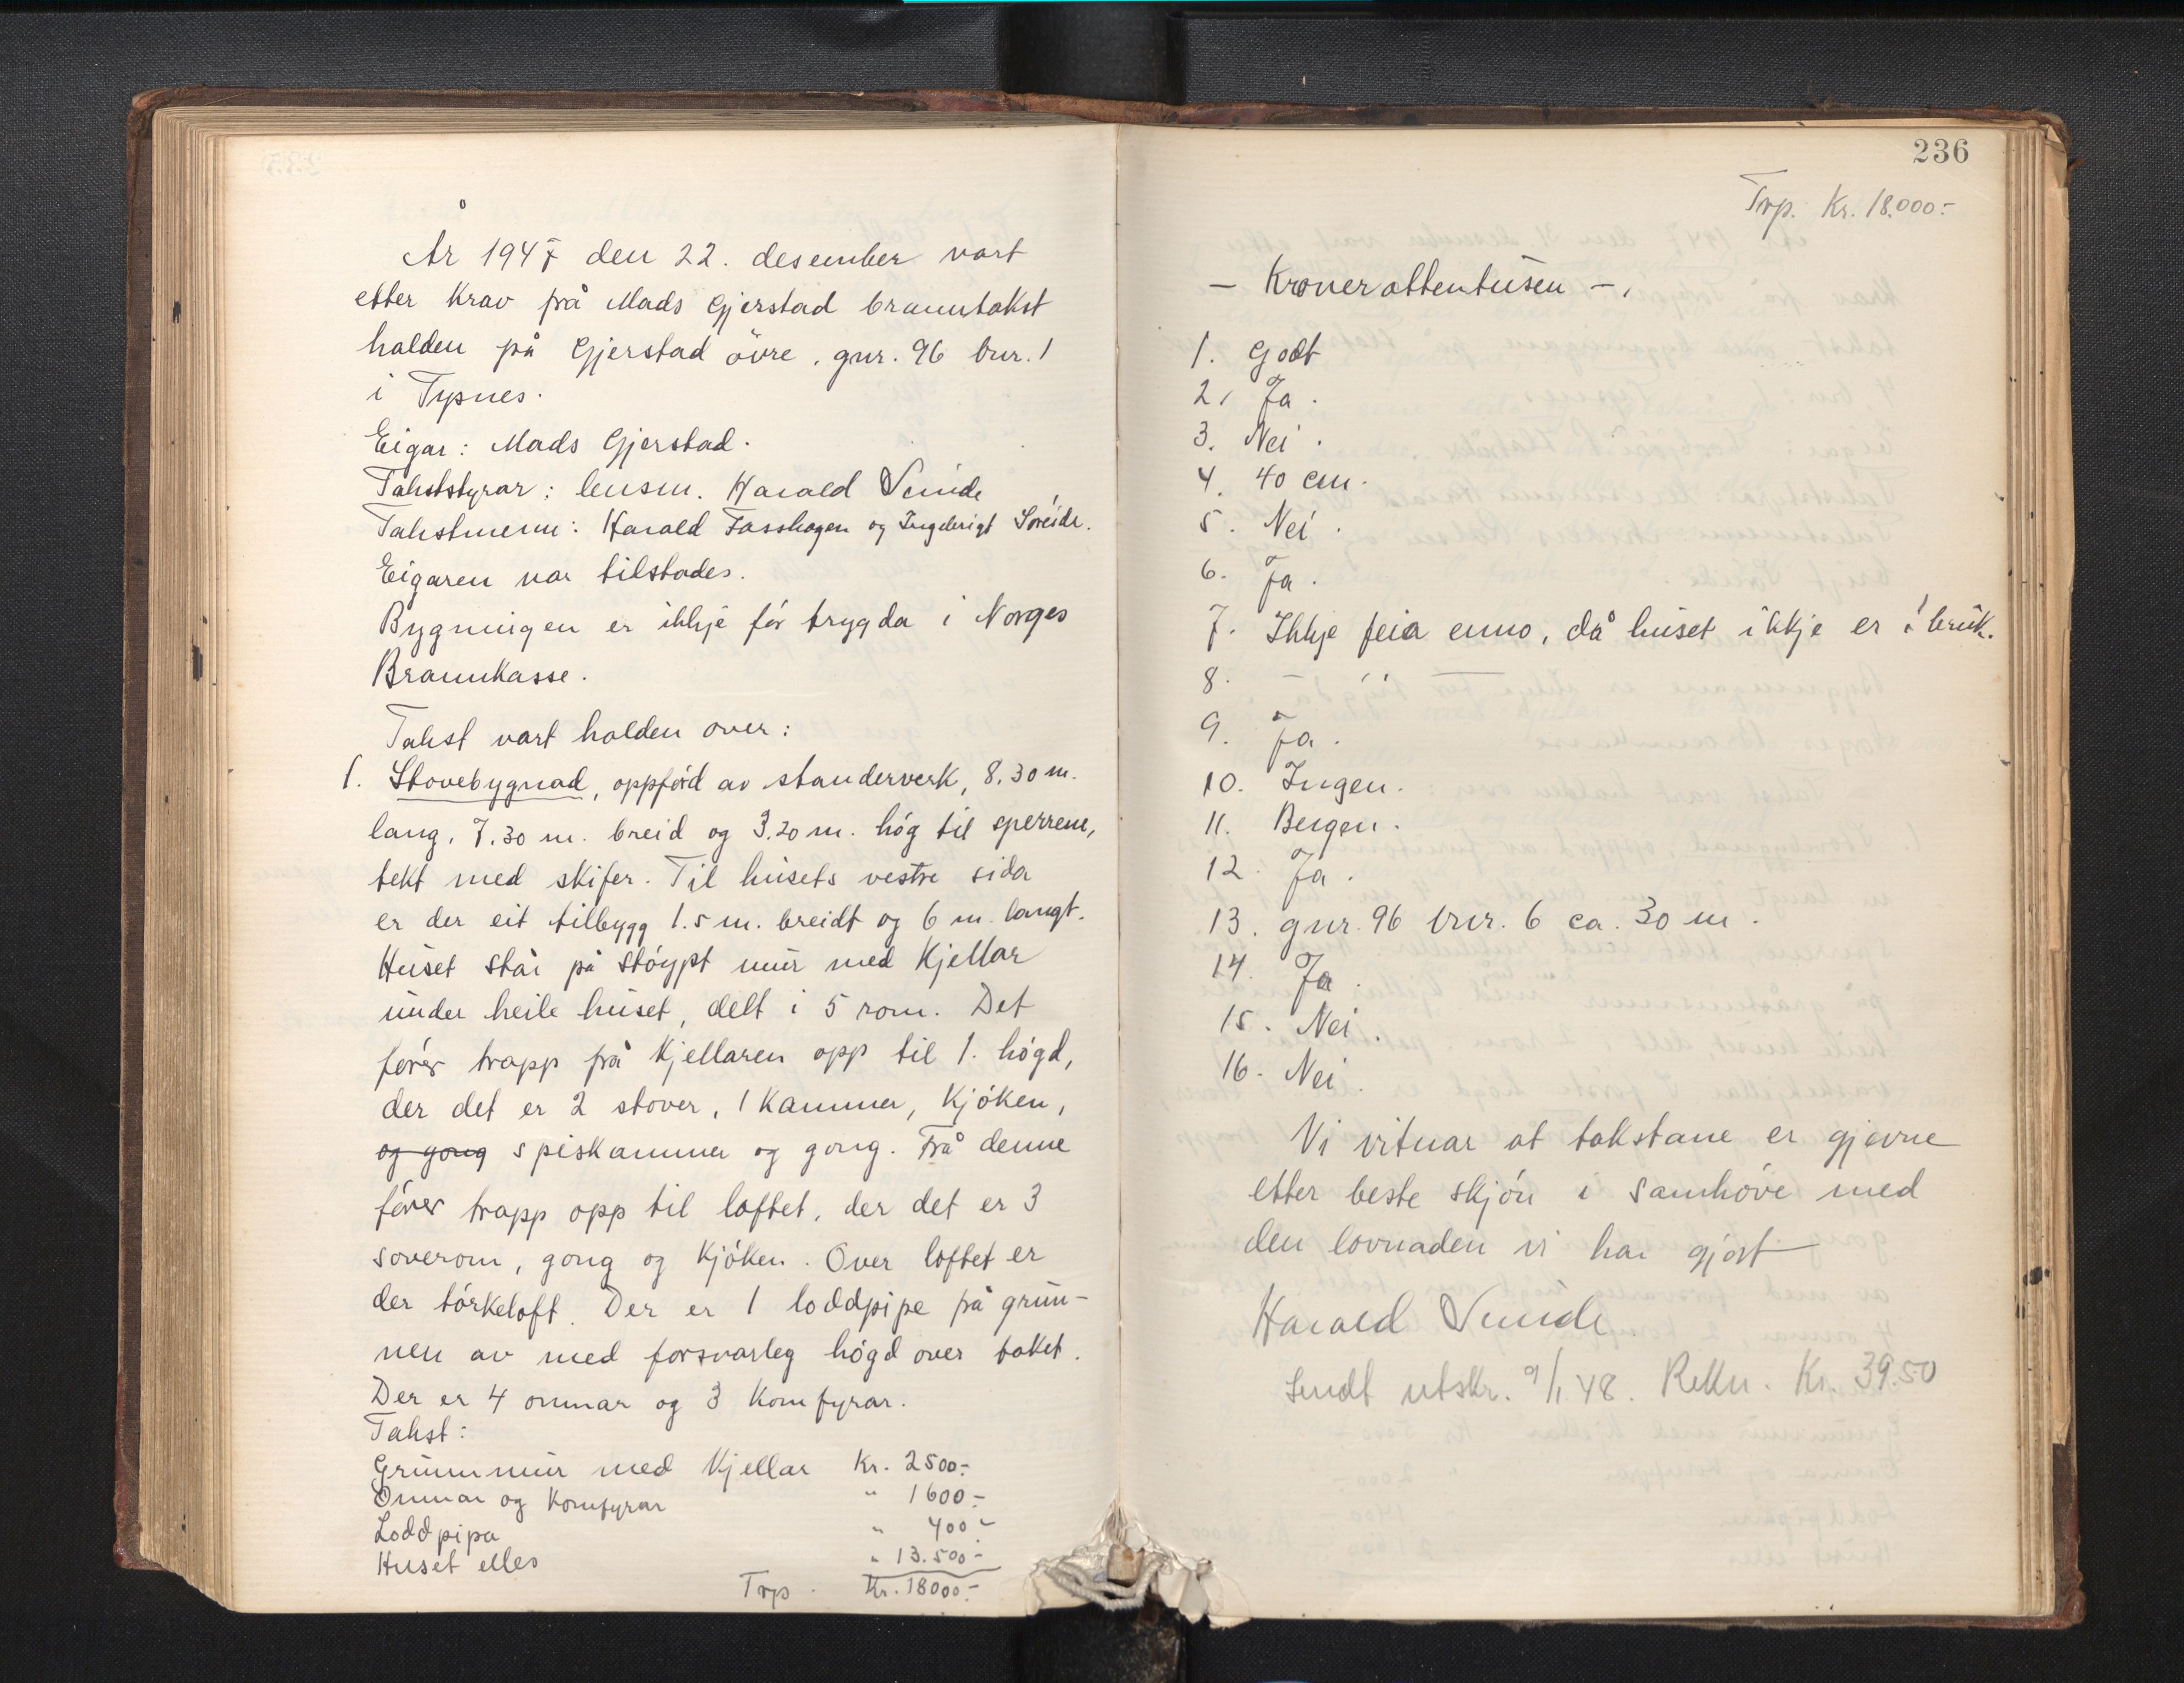 År 1947 den 22. desember vart
etter krav frå Mads Gjerstad branntakst
halden på Gjerstad övre, gnr. 96 bnr. 1
i Tysnes.
Eigar: Mads Gjerstad.
Takststyrar: lensm. Harald Sunde
Takstmenn: Harald Fasshagen og Ingebrigt Soreide.
Eigaren var tilstades.
Bygningen er ikkje för trygda i Norges
Brannkasse.
Takst vart halden over:
1. Stovebygnad, oppförd av standerverk, 8.30 m.
lang, 7.30 m. breid og 3.20 m. hög til sperrene,
tekt med skifer. Til husets vestre sida
er der eit tilbygg 1.5 m. breidt og 6 m. langt.
Huset står på stöypt mur med kjellar
under heile huset, delt i 5 rom. Det
förer trapp frå kjellaren opp til 1. högd,
der det er 2 stover, 1 kammer, kjöken,
og gong spiskammer og gong. Frå denne
förer trapp opp til loftet, der det er 3
soverom, gong og kjöken. Over loftet er
der törkeloft. Der er 1 loddpipe frå grun-
nen av med forsvarleg högd over taket.
Der er 4 omnar og 3 komfyrar.
Takst:
Grunnmur med kjellar Kr. 2500.-
Omnar og komfyrar " 1600.-
Loddpipa " 400.-
Huset elles " 13.500.-
Trp. Kr. 18000.-
236
Trp. Kr. 18.000.-
- Kroneratten tusen -.
1. Godt
2. Ja.
3. Nei.
4. 40 cm.
5. Nei.
6. Ja.
7. Ikkje feia enno, då huset ikkje er i bruk.
8. -
9. Ja.
10. Ingen.
11. Bergen.
12. Ja.
13. gnr. 96 bnr. 6 ca. 30 m.
14. Ja.
15. Nei.
16. Nei.
Vi vitnar at takstane er gjevne
etter beste skjön i samhöve med
den lovnaden vi har gjort
Harald Sunde.
Sendt utskr. 9/1 48. Rekn. Kr. 39.50